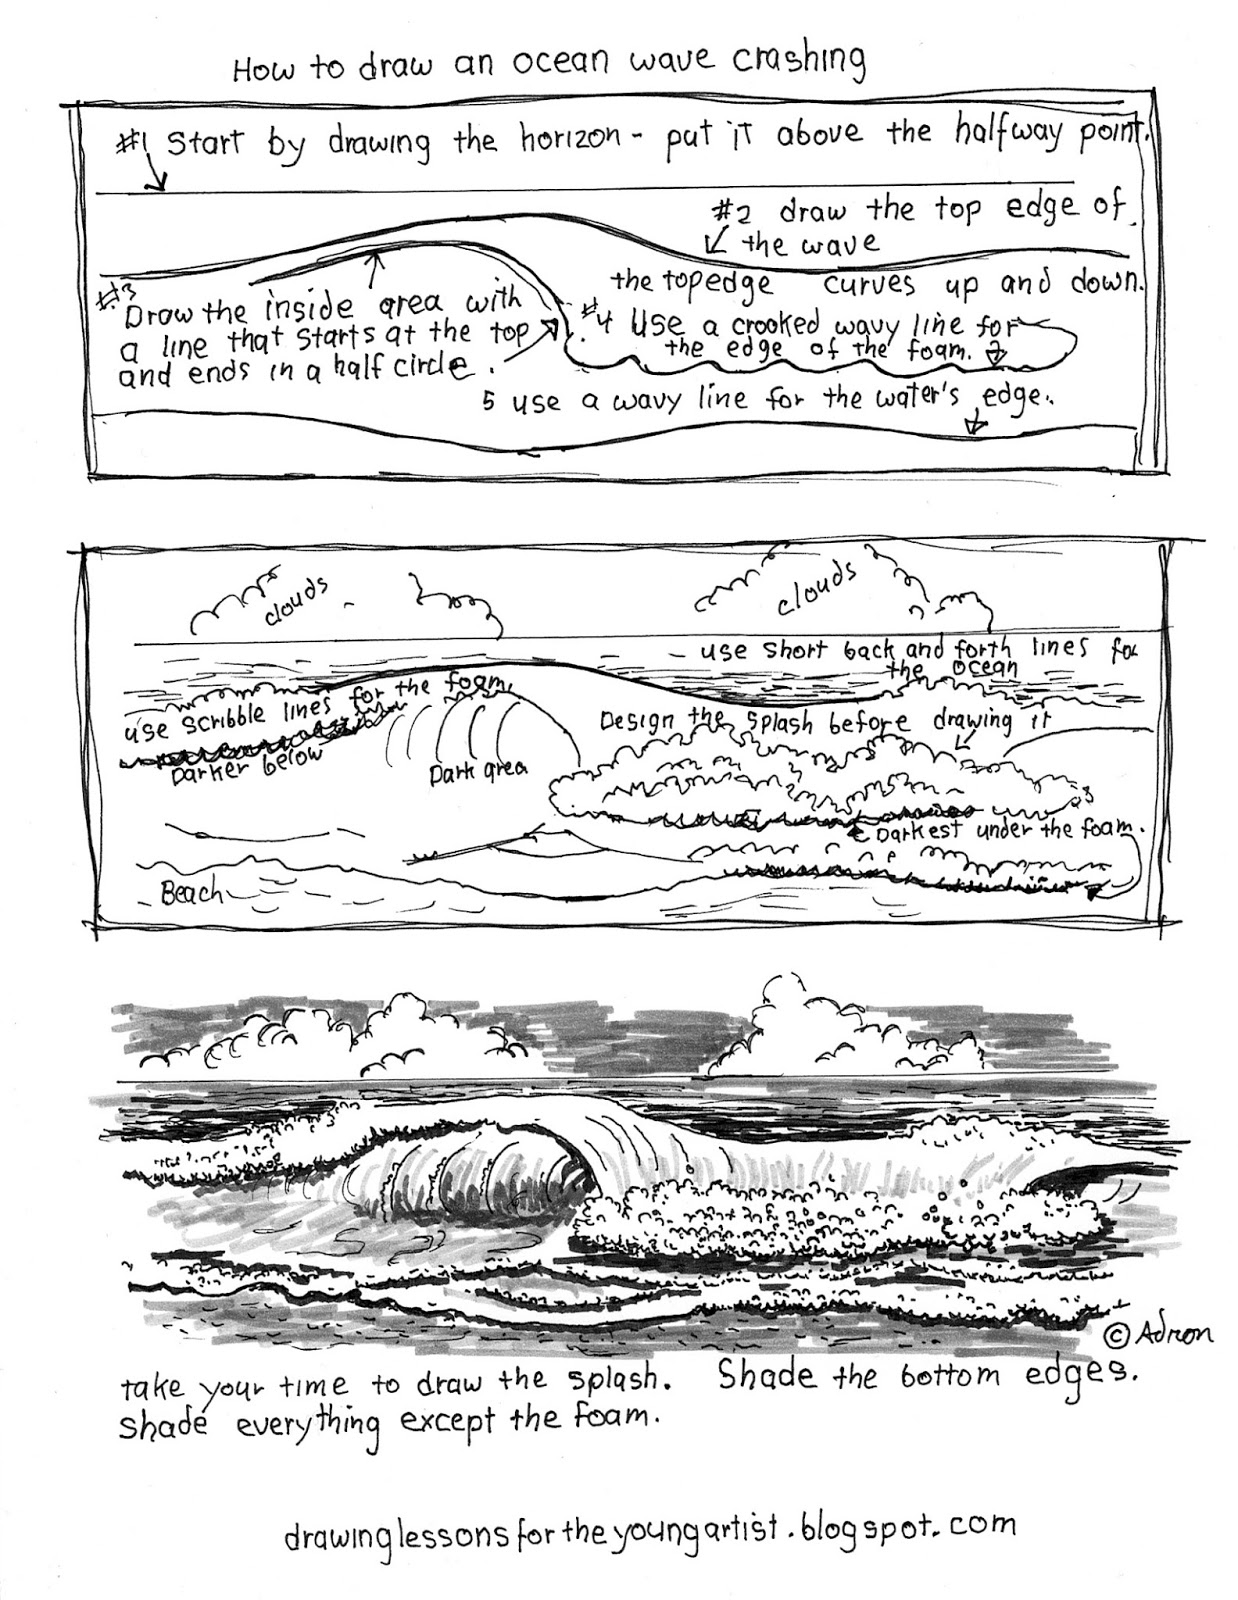 How to draw an ocean wave crashing
#1 Start by drawing the horizon - put it above the halfway point.
#2 draw the top edge of
the wave
the top edge curves up and down.
#3
Draw the inside area with
a line that starts at the top
and ends in a half circle.
#4 Use a crooked wavy line for
the edge of the foam.
5 use a wavy line for the water's edge.
clouds
clouds
- use short back and forth lines for
the ocean
use scribble lines for the foam.
Darker below
Dark area
Design the splash before drawing it
Darkest under the foam.
Beach
© Adron
take your time to draw the splash. Shade the bottom edges.
shade everything except the foam.
drawinglessonsfortheyoungartist.blogspot.com